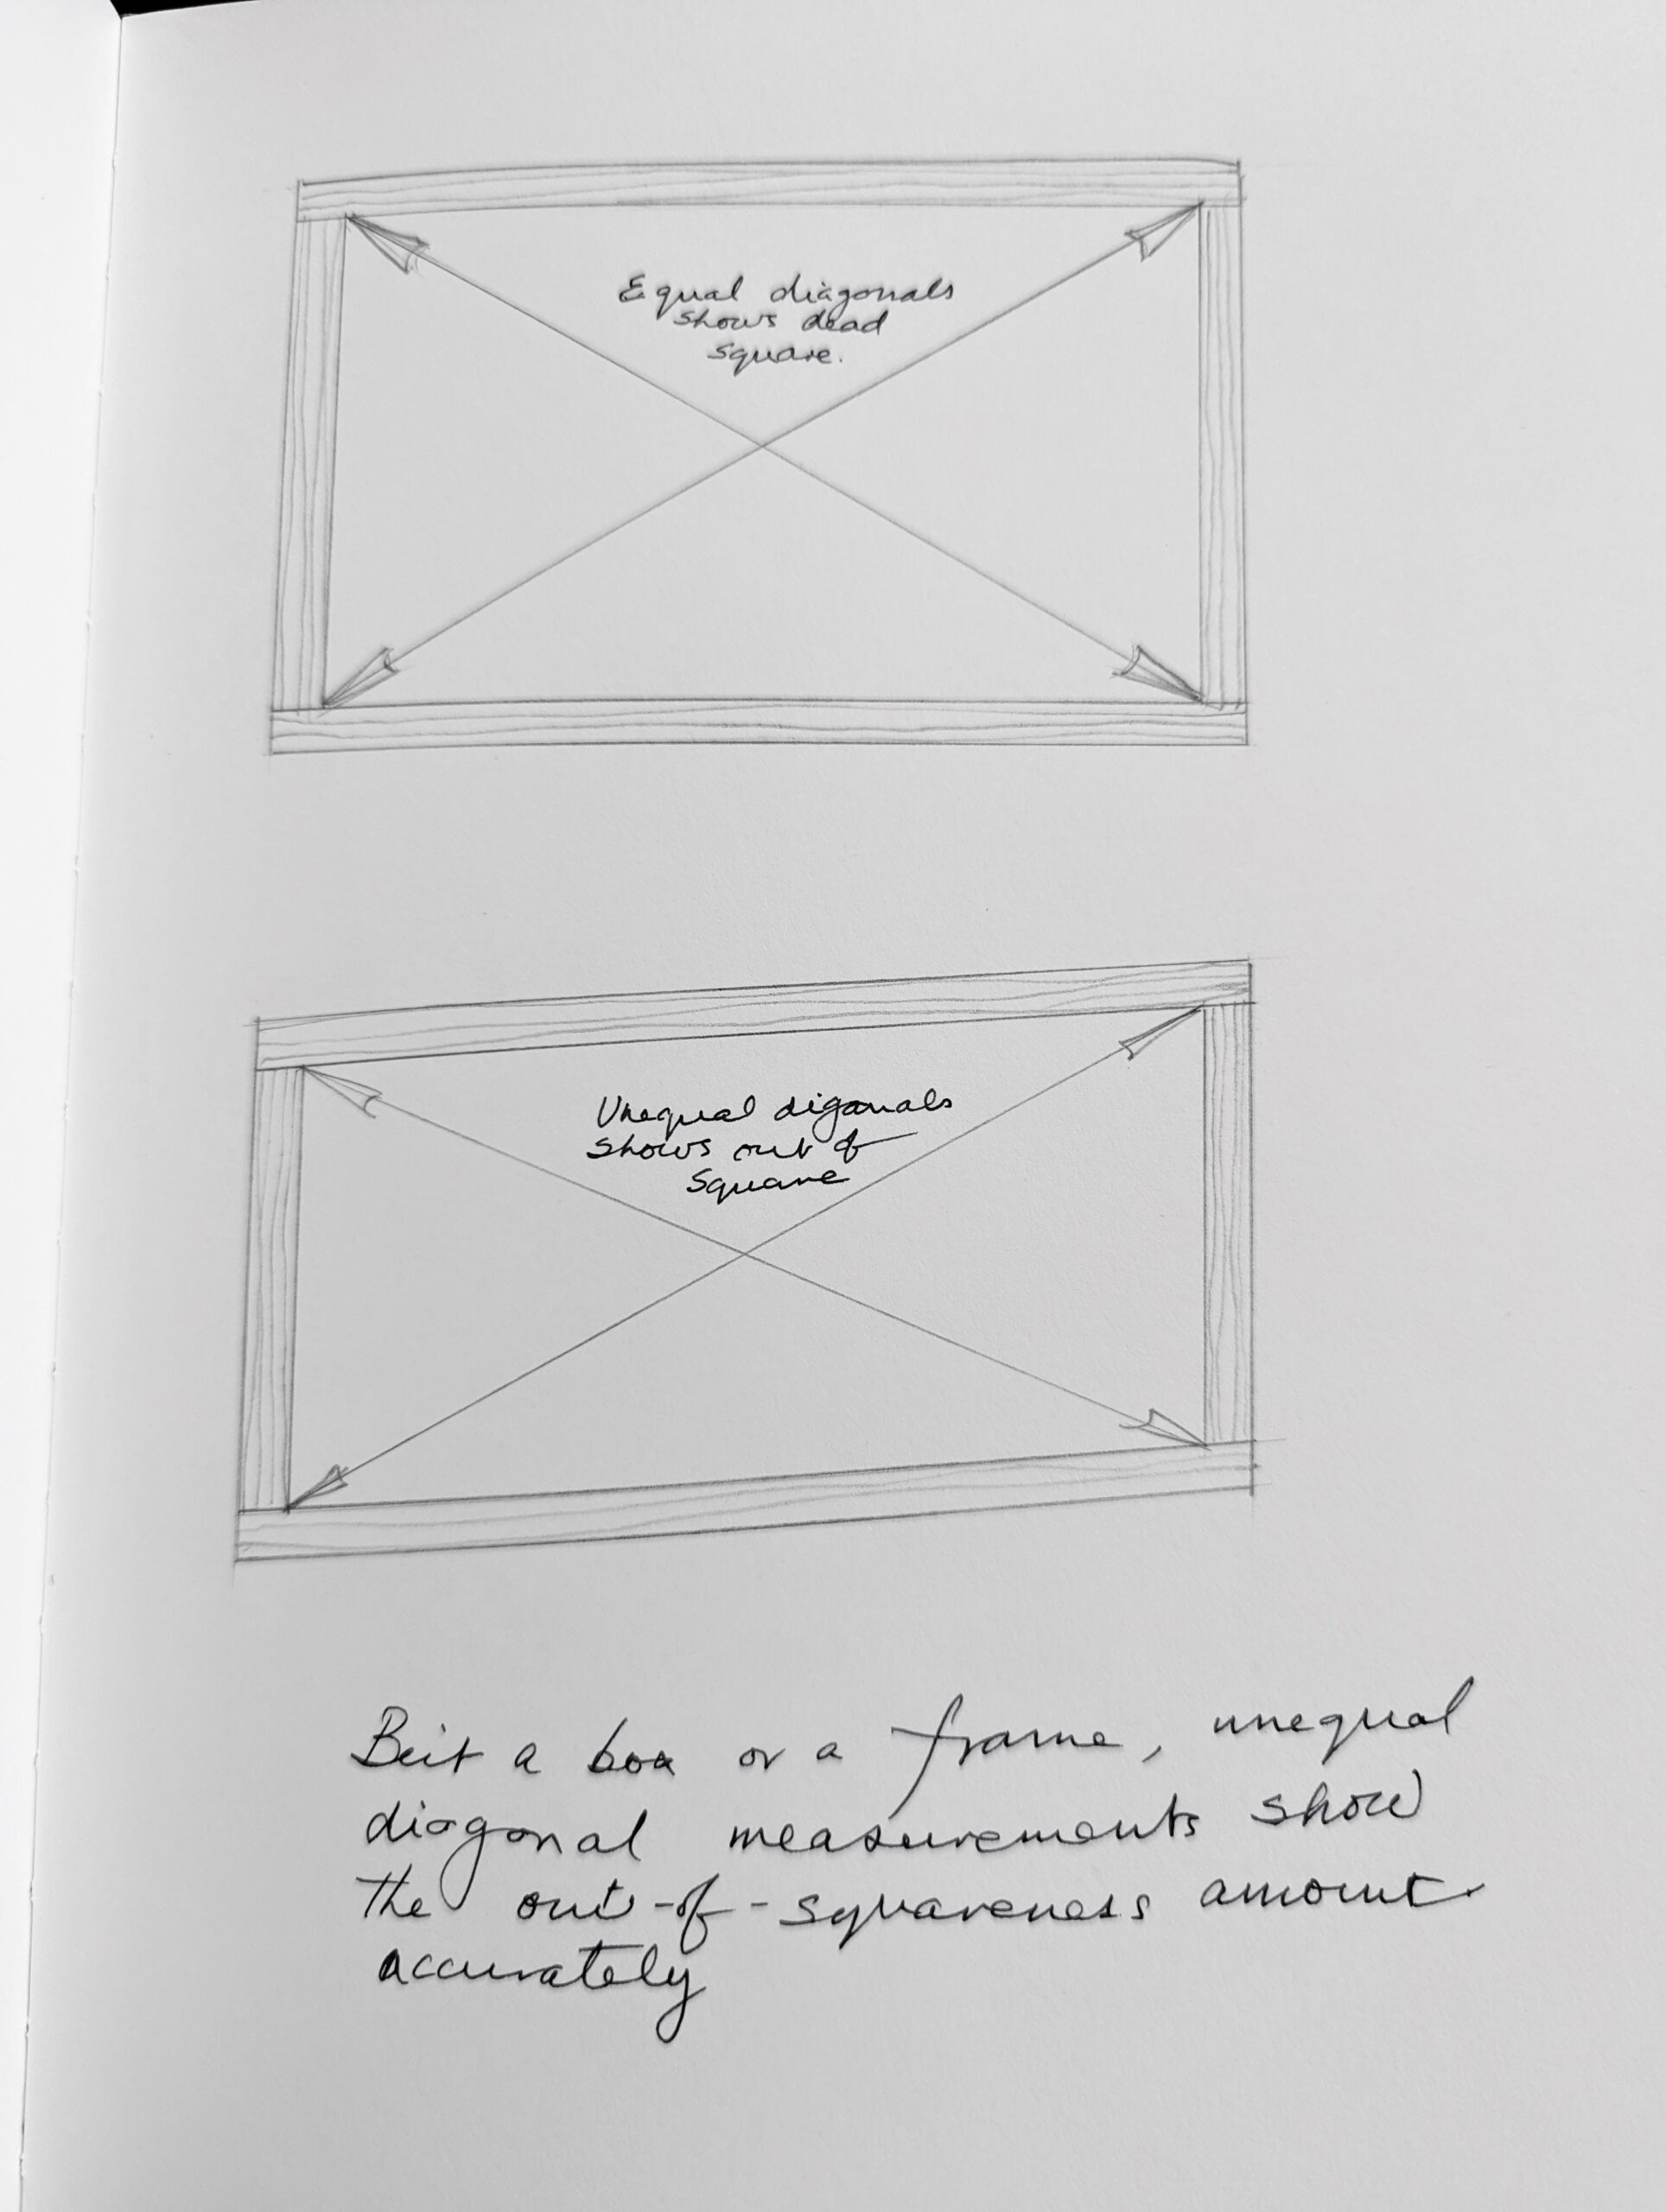 Equal diagonals
shows dead
square.
Unequal diganals
shows out of
Square
Beit a box or a frame, unequal
diagonal measurements show
the out-of-squareness amount
accurately